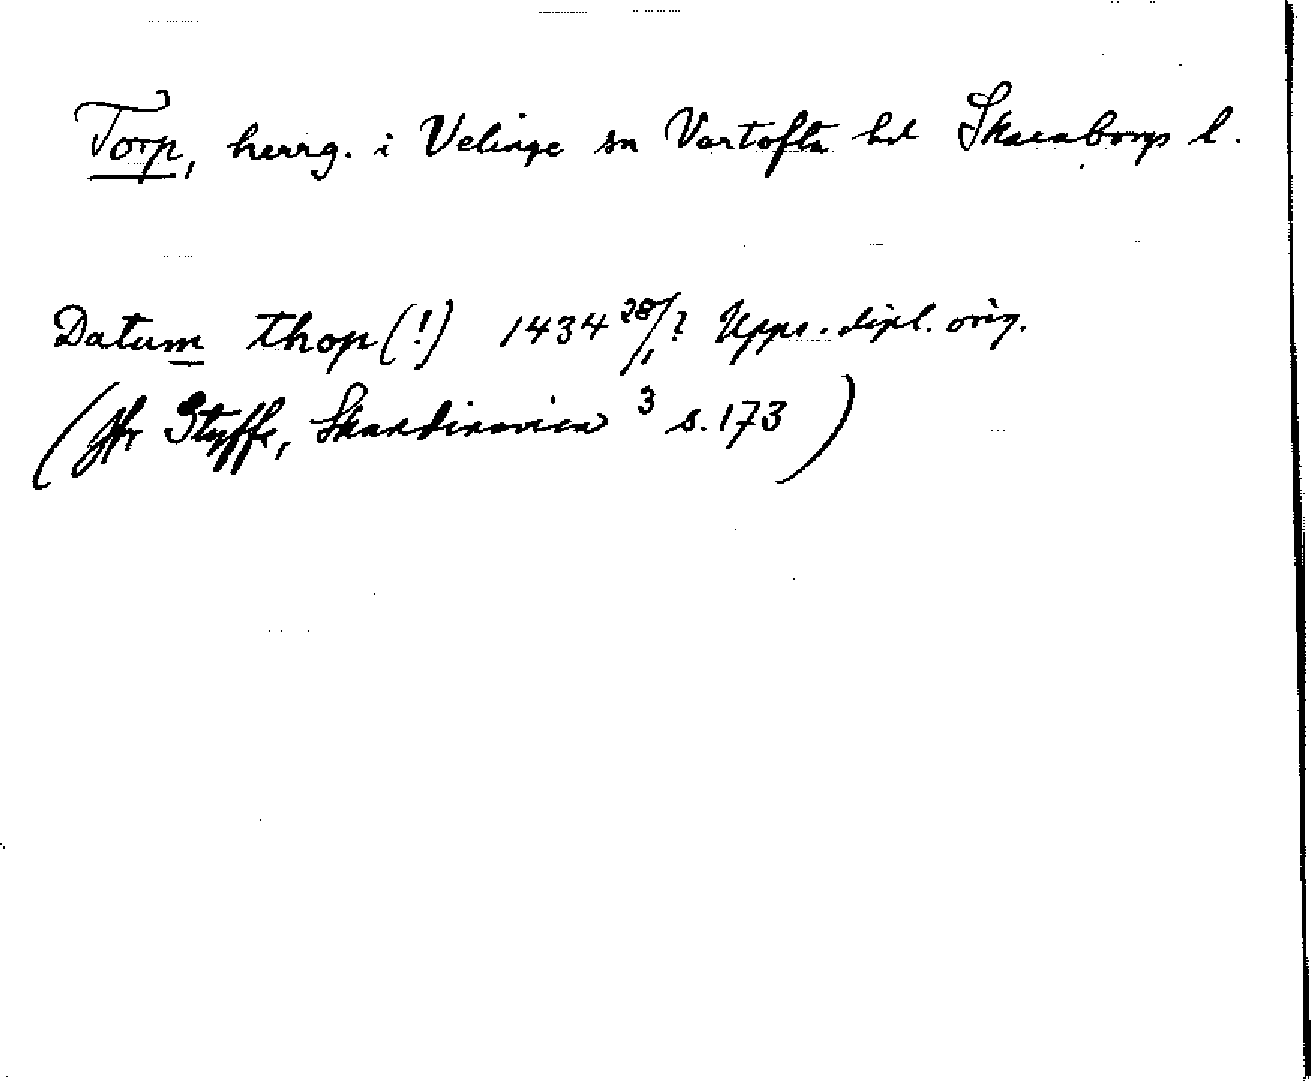 Torp, herrg. i Velinge sn Vartofta hd Skaraborgs l.
Datum thop (!) 1434 28/1? Upps. dipl. orig.
(Jfr Styffe, Skandinavien 3 s. 173)